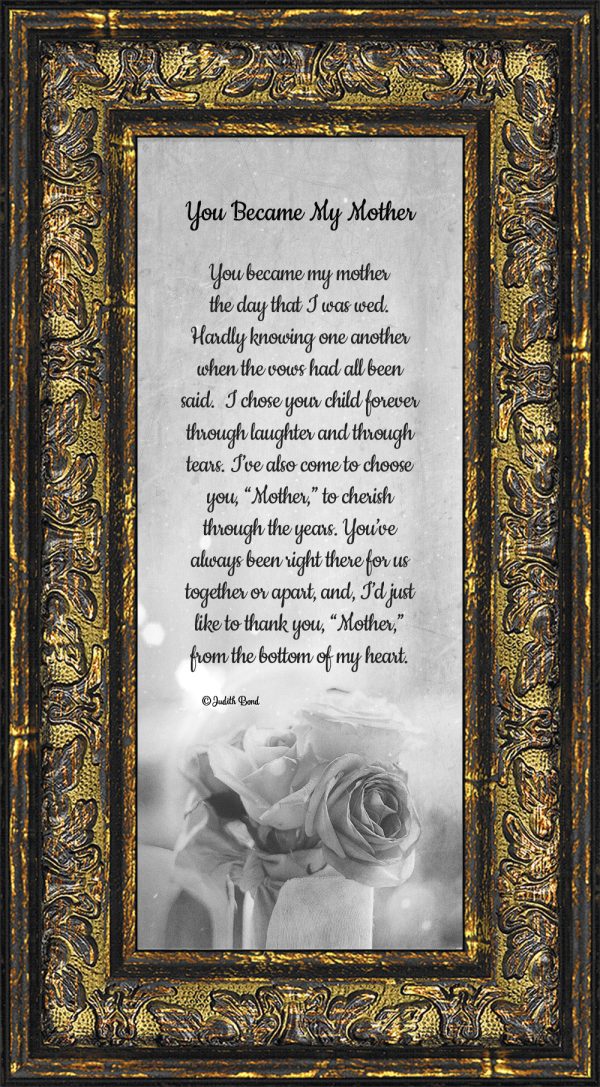 You Became My Mother
You became my mother
the day that I was wed.
Hardly knowing one another
when the vows had all been
said.  I chose your child forever
through laughter and through
tears. I've also come to choose
you, “Mother,” to cherish
through the years. You've
always been right there for us
together or apart, and, I'd just
like to thank you, “Mother,”
from the bottom of my heart.
© Judith Bond